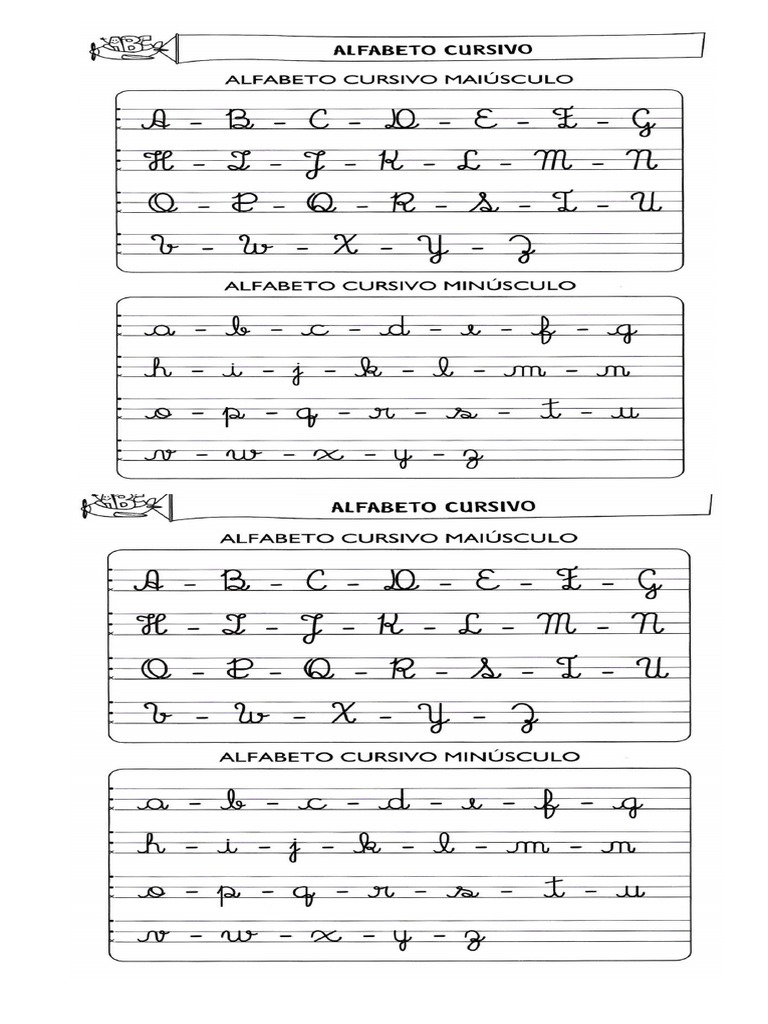 ABC
ALFABETO CURSIVO
ALFABETO CURSIVO MAIÚSCULO
A - B - C - D - E - F - G
H - I - J - K - L - M - N
O - P - Q - R - S - T - U
V - W - X - Y - Z
ALFABETO CURSIVO MINÚSCULO
a - b - c - d - e - f - g
h - i - j - k - l - m - n
o - p - q - r - s - t - u
v - w - x - y - z
ABC
ALFABETO CURSIVO
ALFABETO CURSIVO MAIÚSCULO
A - B - C - D - E - F - G
H - I - J - K - L - M - N
O - P - Q - R - S - T - U
V - W - X - Y - Z
ALFABETO CURSIVO MINÚSCULO
a - b - c - d - e - f - g
h - i - j - k - l - m - n
o - p - q - r - s - t - u
v - w - x - y - z